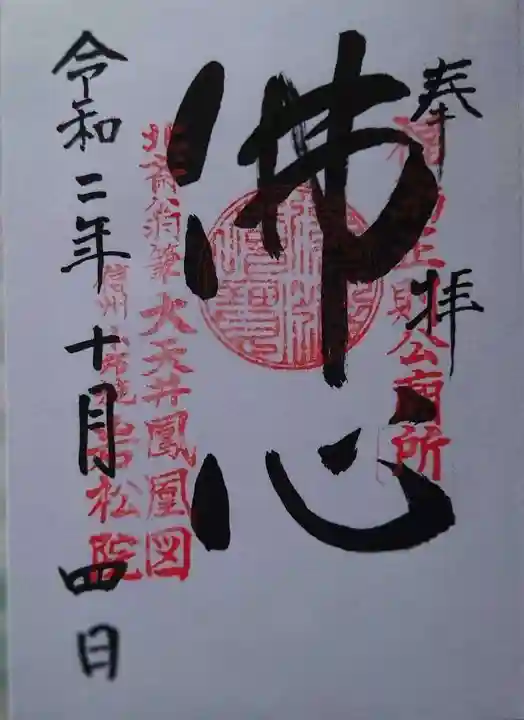 奉拝
福島正則公廟所
佛心
北斎翁筆 大天井鳳凰図
信州小布施 岩松院
令和二年十月四日